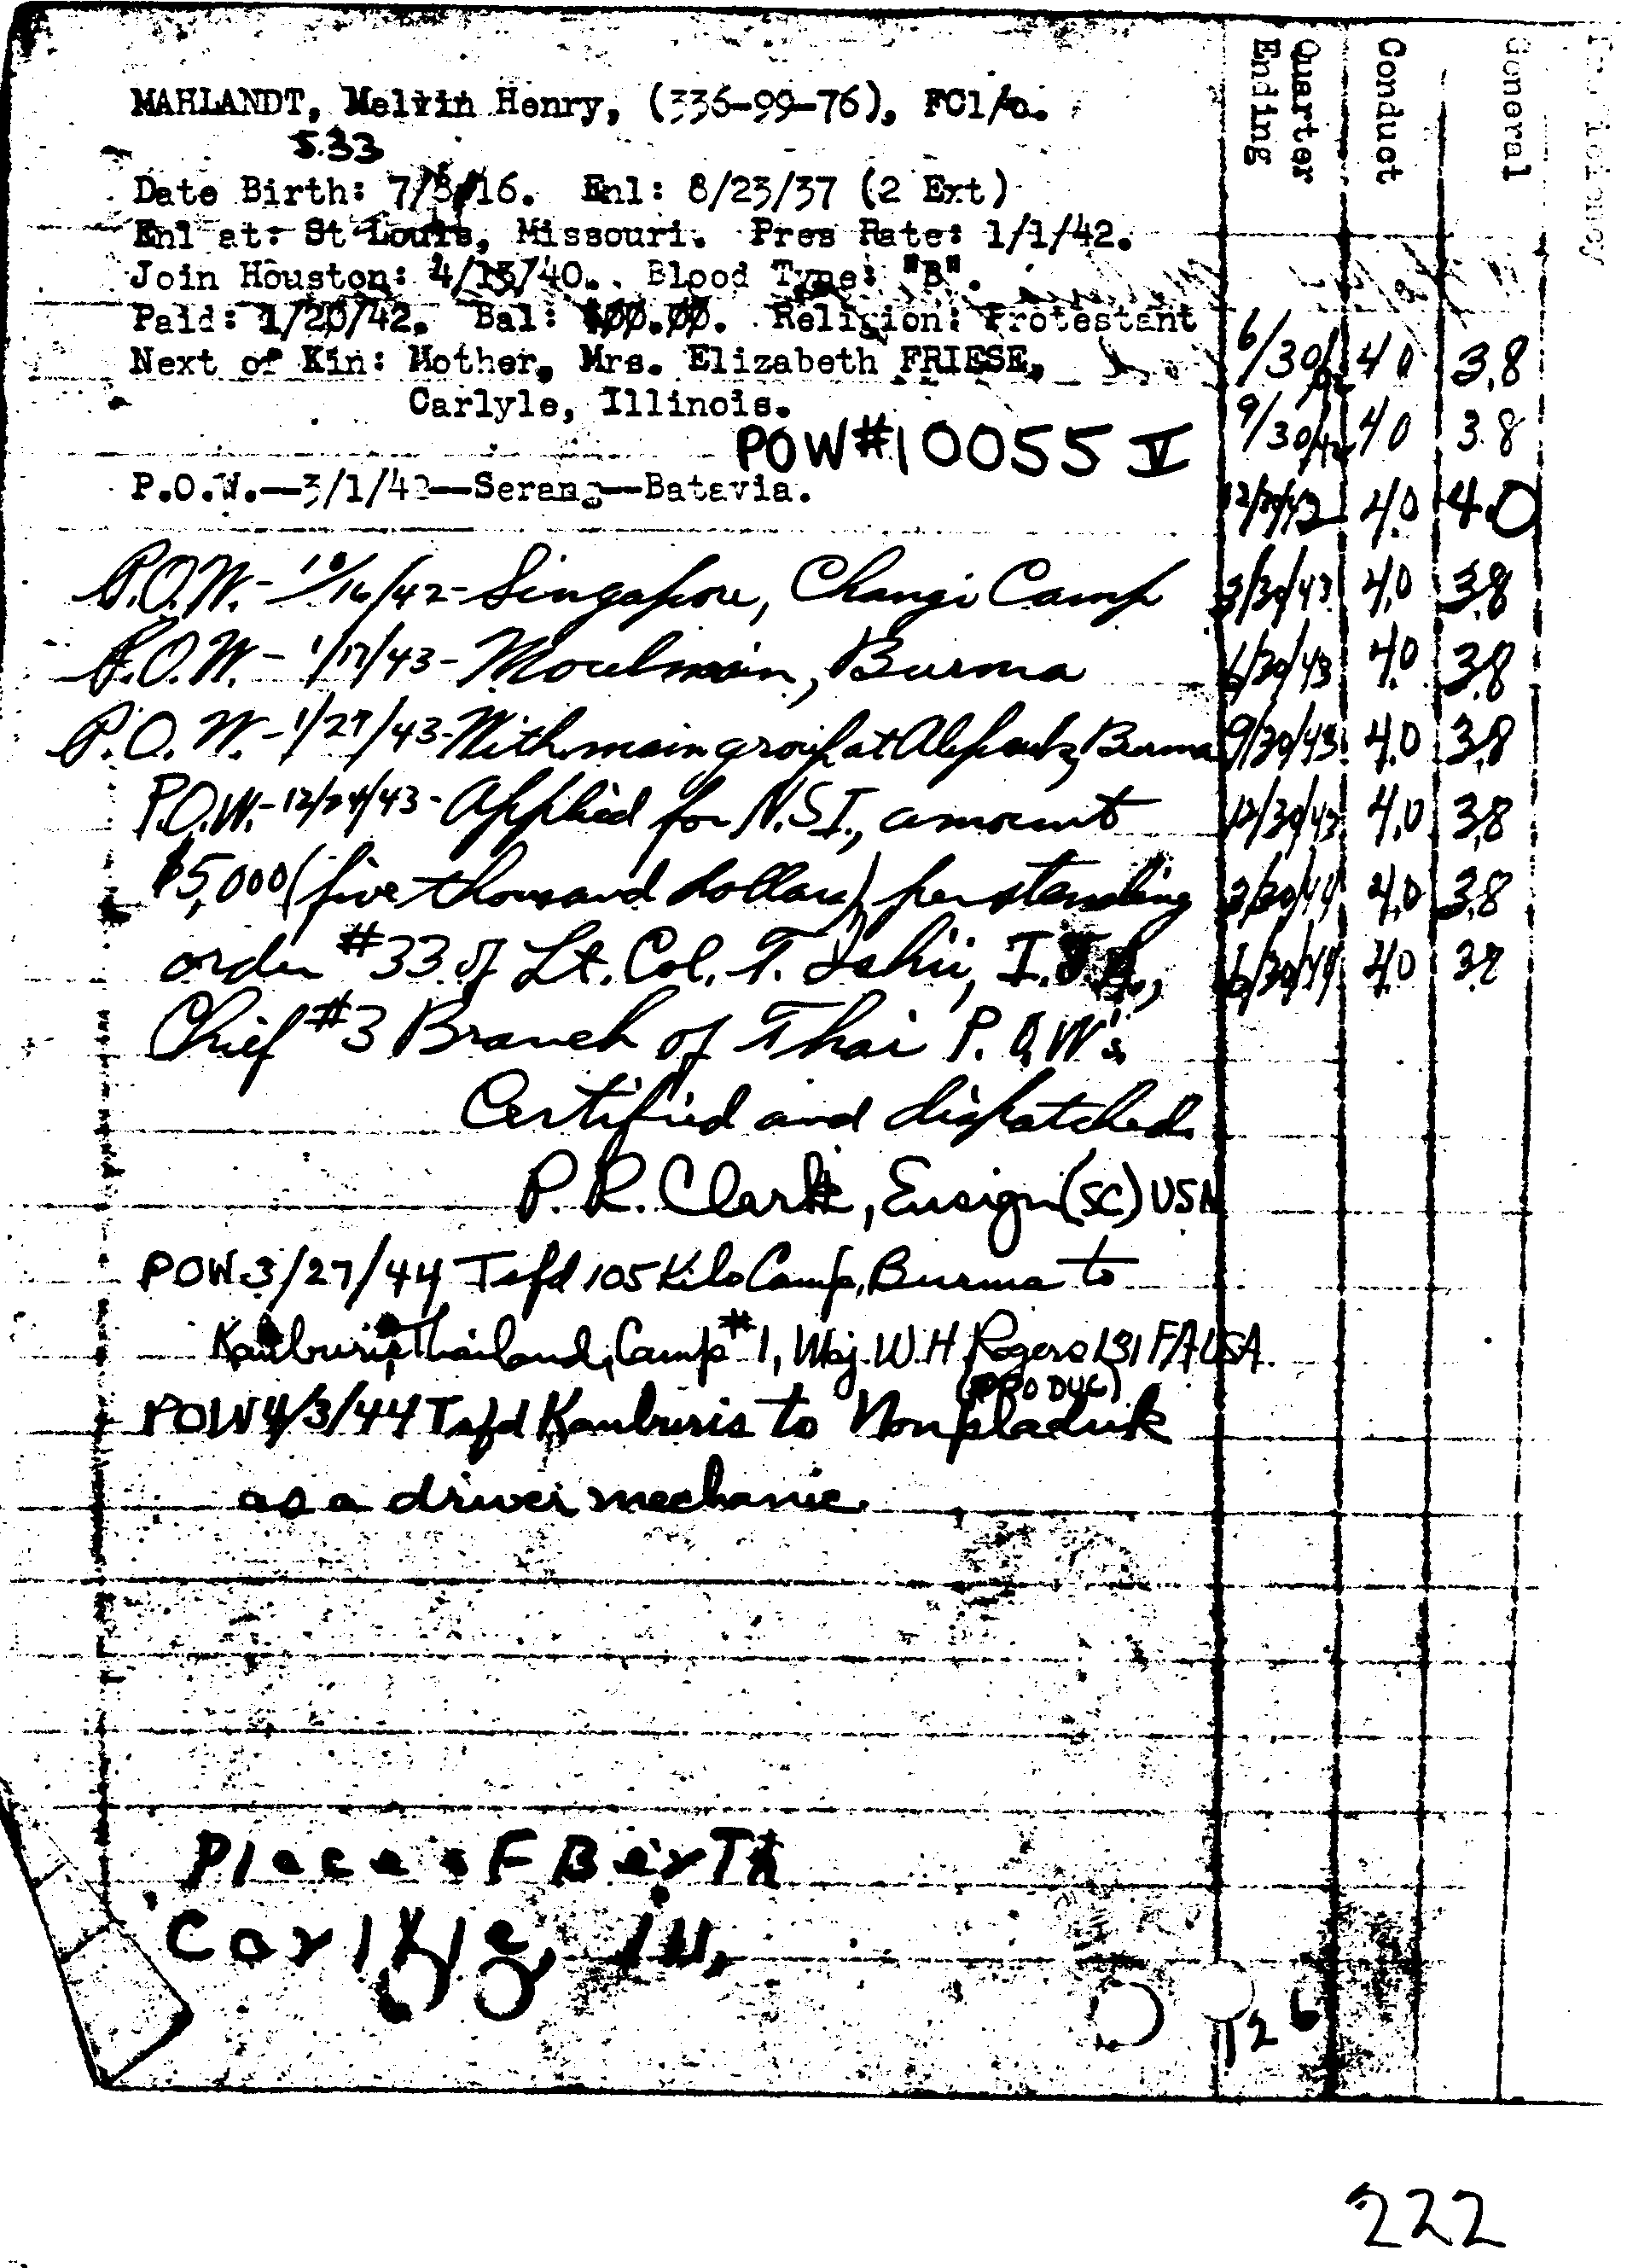 MAHLANDT, Melvin Henry, (336-99-76), FC1/c.
5.33
Date Birth: 7/8/16. Enl: 8/23/37 (2 Ext)
Enl at: St Louis, Missouri. Pres Rate: 1/1/42.
Join Houston: 4/13/40. Blood Type: "B".
Paid: 1/20/42. Bal: $00.00. Religion: Protestant
Next of Kin: Mother, Mrs. Elizabeth FRIESE,
Carlyle, Illinois.
POW#10055 V
P.O.W.—3/1/42—Serang—Batavia.
P.O.W.- 10/16/42- Singapore, Changi Camp
P.O.W.- 1/17/43- Moulmein, Burma
P.O.W.- 1/27/43- With main group at Burma
P.O.W.- 12/24/43- Applied for N.S.I., amount
$5,000 (five thousand dollars) per standing
order #33 of Lt. Col. T. Ishii, I.J.A.,
Chief #3 Branch of Thai P.O.W's.
Certified and dispatched.
P. R. Clark, Ensign (SC) USN
POW 3/27/44 Tsfd 105 Kilo Camp, Burma to
Kanburis, Thailand, Camp #1, Maj. W.H Rogers 131 FA USA.
POW 4/3/44 Tsfd Kanburis to Nonpladuk
as a driver mechanic
Place oF BirTh
Carlyle, Ill,
Quarter Ending Conduct General
6/30/42 4 0 3.8
9/30/42 4 0 3.8
12/30/42 4.0 4.0
3/30/43 4.0 3.8
6/30/43 4.0 3.8
9/30/43 4.0 3.8
12/30/43 4.0 3.8
3/30/44 4.0 3.8
6/30/44 4.0 3.8
126
222